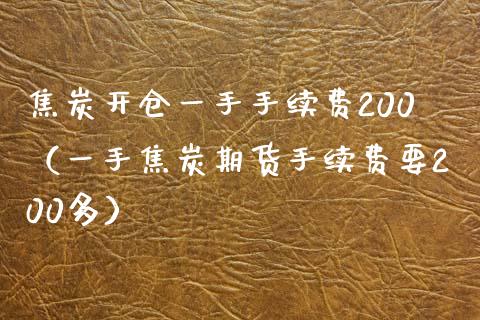 焦炭开仓一手手续费200
（一手焦炭期货手续费要2
00多）